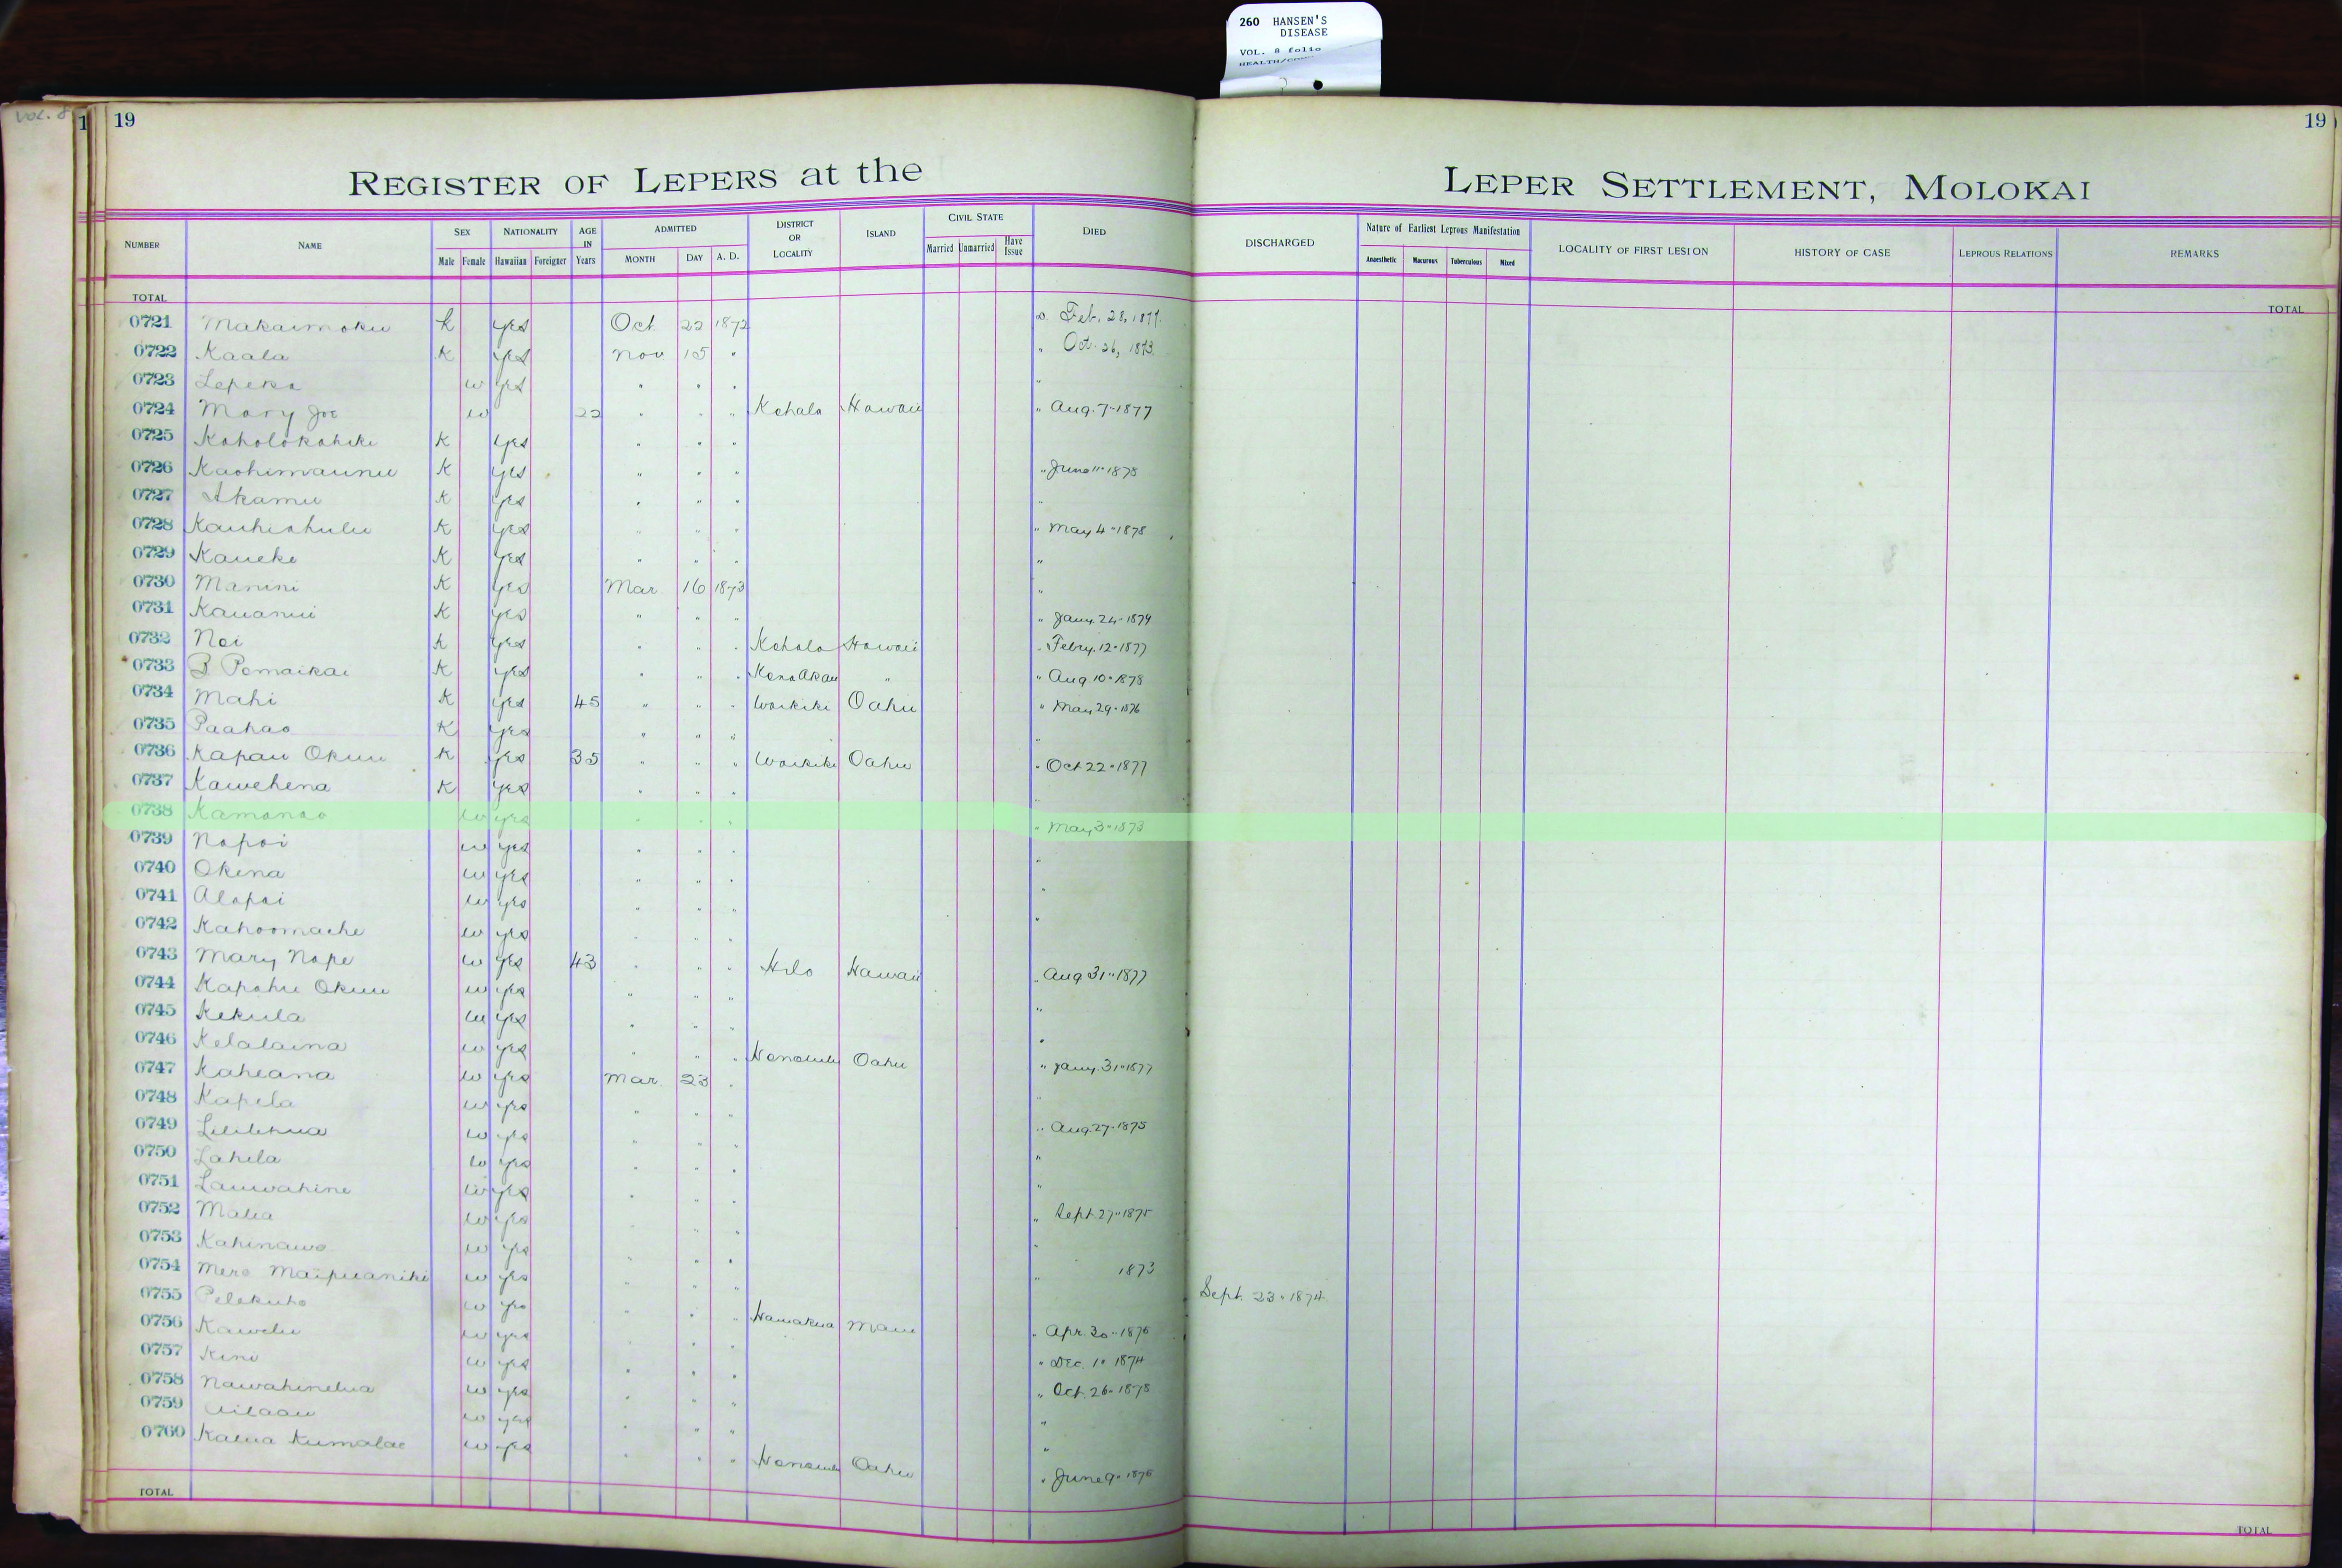 260 HANSEN'S
DISEASE
VOL. 8 folio
Vol. 8
1
19
19
REGISTER OF LEPERS at the
LEPER SETTLEMENT, MOLOKAI
NUMBER NAME SEX Male Female NATIONALITY Hawaiian Foreigner AGE IN Years ADMITTED MONTH DAY A. D. DISTRICT OR LOCALITY ISLAND CIVIL STATE Married Unmarried Have Issue DIED DISCHARGED Nature of Earliest Leprous Manifestation Anaesthetic Macurous Tuberculous Mixed LOCALITY OF FIRST LESION HISTORY OF CASE LEPROUS RELATIONS REMARKS
TOTAL TOTAL
0721 Makaimoku K yes Oct 22 1872 D. Feb. 28, 1877.
0722 Kaala K yes Nov 15 " " Oct. 26, 1873.
0723 Lepeka W yes " " " "
0724 Mary Joe W 22 " " " Kohala Hawaii " Aug. 7-1877
0725 Koholokahiki K yes " " "
0726 Kaohimaunu K yes " " " " June 11-1878
0727 Akamu K yes " " " "
0728 Kauhiahulu K yes " " " " May 4-1878
0729 Kaueke K yes " " " "
0730 Manini K yes Mar 16 1873 "
0731 Kauanui K yes " " " " Jany. 24-1879
0732 Noi K yes " " " Kohala Hawaii " Febry. 12-1877
0733 B Pomaikai K yes " " " Kona Akau " " Aug 10-1878
0734 Mahi K yes 45 " " " Waikiki Oahu " May 29-1876
0735 Paahao K yes " " " "
0736 Kapau Okuu K yes 35 " " " Waikiki Oahu " Oct 22-1877
0737 Kawehena K yes " " " "
0738 Kamanao W yes " " " " May 3-1873
0739 Napoi W yes " " " "
0740 Okena W yes " " " "
0741 Alapai W yes " " " "
0742 Kahoomache W yes " " "
0743 Mary Nape W yes 43 " " " Hilo Hawaii " Aug 31-1877
0744 Kapahu Okuu W yes " " " "
0745 Kekula W yes " " " "
0746 Kelalaina W yes " " " Honolulu Oahu " Jany. 31-1877
0747 Kaheana W yes Mar. 23 " "
0748 Kapela W yes " " " " Aug. 27-1875
0749 Lililehua W yes " " " "
0750 Lahela W yes " " " "
0751 Lauwahine W yes " " " " Sept. 27-1875
0752 Malia W yes " " " "
0753 Kahinawe W yes " " " " 1873
0754 Mere Maipuaniki W yes " " " Sept. 23-1874
0755 Pelekuho W yes " " " Hamakua Maui " Apr. 30-1876
0756 Kawelu W yes " " " " Dec. 1-1874
0757 Kini W yes " " " " Oct. 26-1878
0758 Nawahinelua W yes " " " "
0759 Ailaau W yes " " " "
0760 Kalua Kumalae W yes " " " Honolulu Oahu " June 9-1876
TOTAL TOTAL